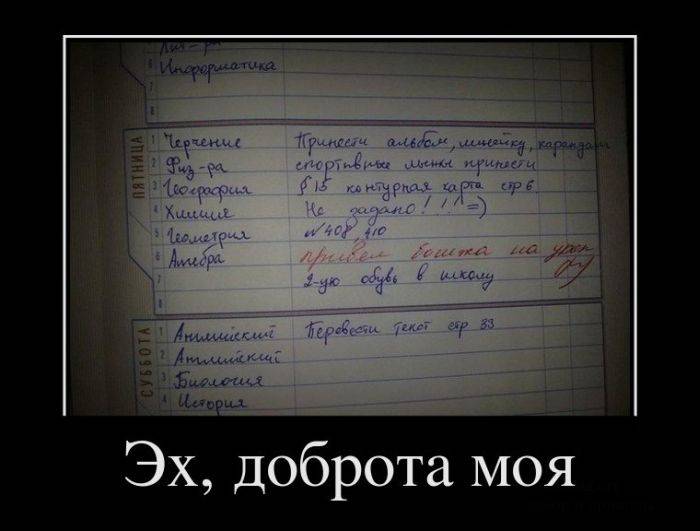 Лит-ра
6 Информатика
7
8
ПЯТНИЦА
1 Черчение Принести альбом, линейку, карандаш
2 Физ-ра спортивные лыжи принести
3 География § 15 контурная карта стр 6
4 Химия Не задано! !!! =)
5 Геометрия № 408, 410
6 Алгебра привёл бомжа на урок
7 2-ую обувь в школу
8
СУББОТА
1 Английский Перевести текст стр 33
2 Английский
3 Биология
4 История
Эх, доброта моя